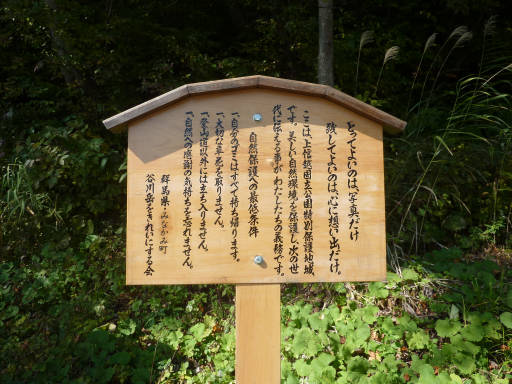 とってよいのは、写真だけ
残してよいのは、心に想い出だけ。
ここは、上信越国立公園特別保護地域
です。美しい自然環境を保護し、次の世
代に伝える事がわたしたちの義務です。
自然保護への最低条件
一、自分のゴミはすべて持ち帰ります。
一、大切な草花を取りません。
一、登山道以外には立ち入りません。
一、自然への感謝の気持ちを忘れません。
群馬県・みなかみ町
谷川岳をきれいにする会